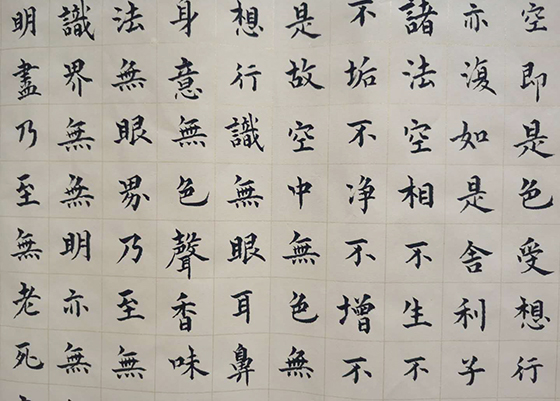 空即是色受想行
亦復如是舍利子
諸法空相不生不
不垢不净不增不
是故空中無色無
想行識無眼耳鼻
身意無色聲香味
法無眼界乃至無
識界無無明亦無
明盡乃至無老死